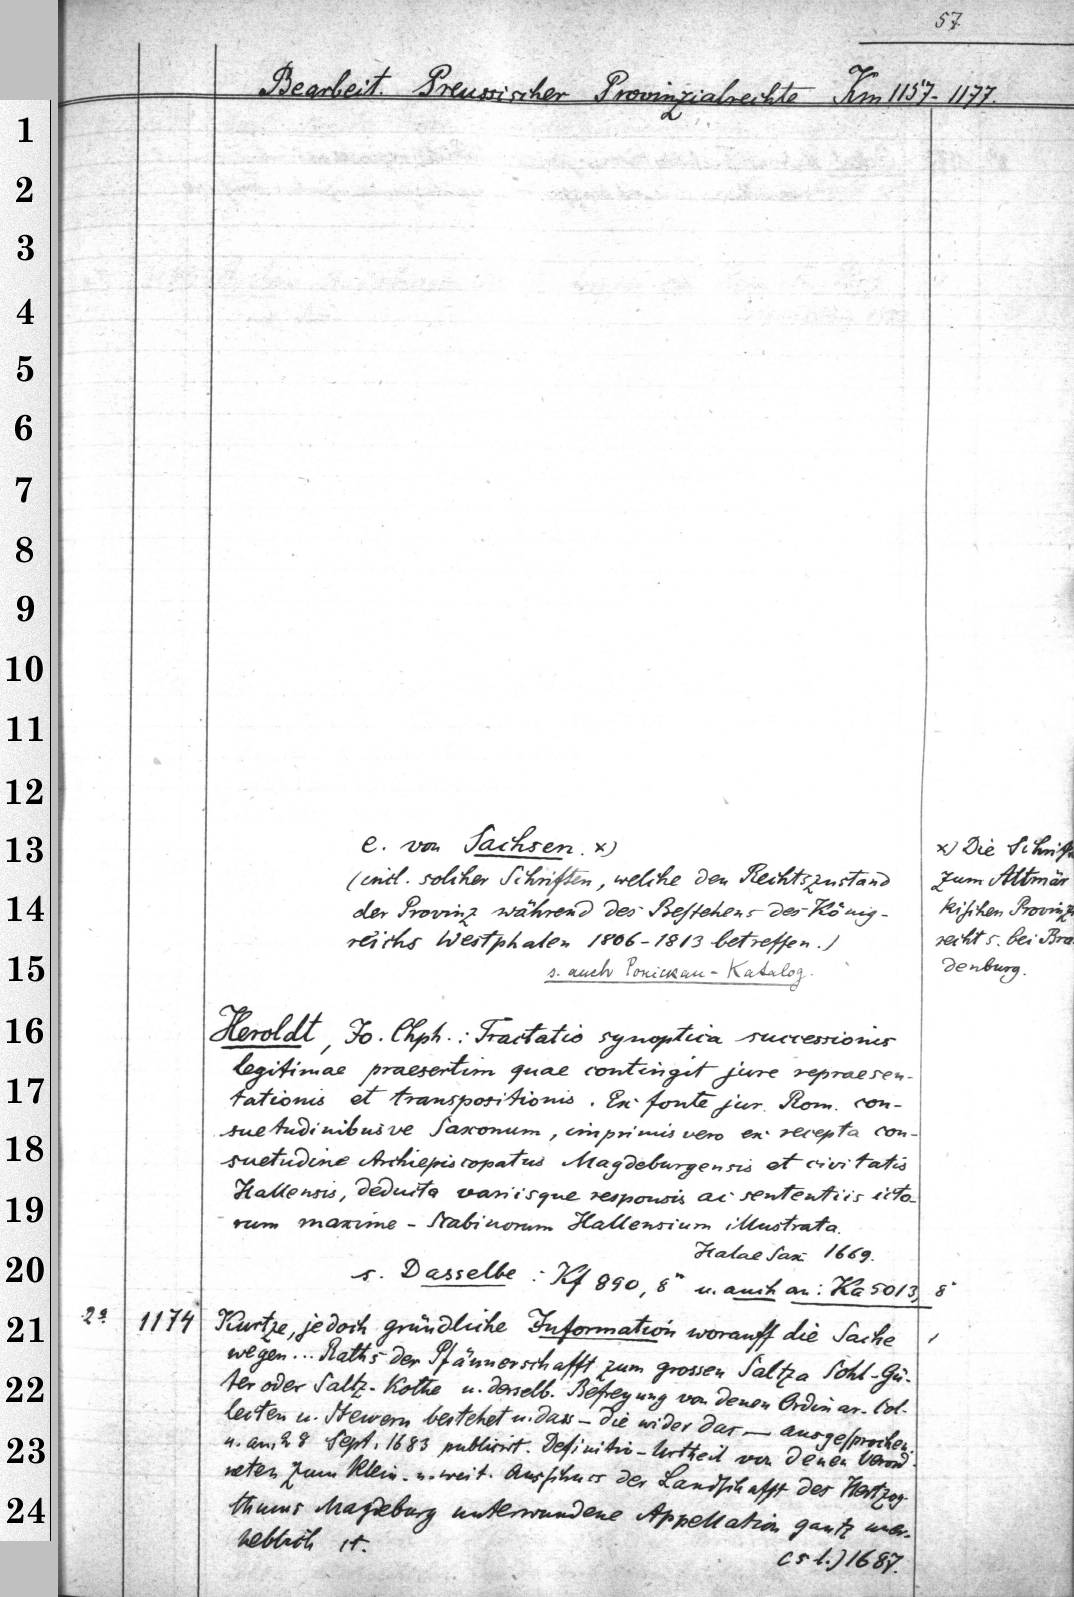 57
Bearbeit. Preussischer Provinzialrechte Km 1157-1177.
1
2
3
4
5
6
7
8
9
10
11
12
13
14
15
16
17
18
19
20
21
22
23
24
e. von Sachsen. x)
(incl. solcher Schriften, welche den Rechtszustand
der Provinz während des Bestehens des König-
reichs Westphalen 1806-1813 betreffen.)
s. auch Ponickau-Katalog.
x) Die Schrift
zum Altmär
kischen Provinz
recht s. bei Bra
denburg.
Heroldt, Jo. Chph.: Tractatio synoptica successionis
legitimae praesertim quae contingit jure repraesen-
tationis et transpositionis. Ex fonte jur. Rom. con-
suetudinibusve Saxonum, imprimis vero ex recepta con-
suetudine Archiepiscopatus Magdeburgensis et civitatis
Hallensis, deducta variisque responsis ac sententiis icto-
rum maxime - Scabinorum Hallensium illustrata.
Halae Sax 1669.
s. Dasselbe: Kf 890, 8° u. auch an: Ka 5013, 8°
2° 1174 Kurtze, jedoch gründliche Information worauff die Sache
wegen... Raths der Pfännerschafft zum grossen Saltza Sohl-Gü-
ter oder Saltz-Kothe u. derselb. Befreyung von denen Ordinar-Col-
lecten u. Stewern bestehet u. dass - die wider das — ausgesprochen.
u. am 28 Sept. 1683 publicirt. Definitiv-Urtheil von denen Verord-
neten zum Klein- u. weit. Ausschuss der Landschafft des Hertzog-
thums Magdeburg unterwundene Appellation gantz uner-
heblich ist.
(s l.) 1687.